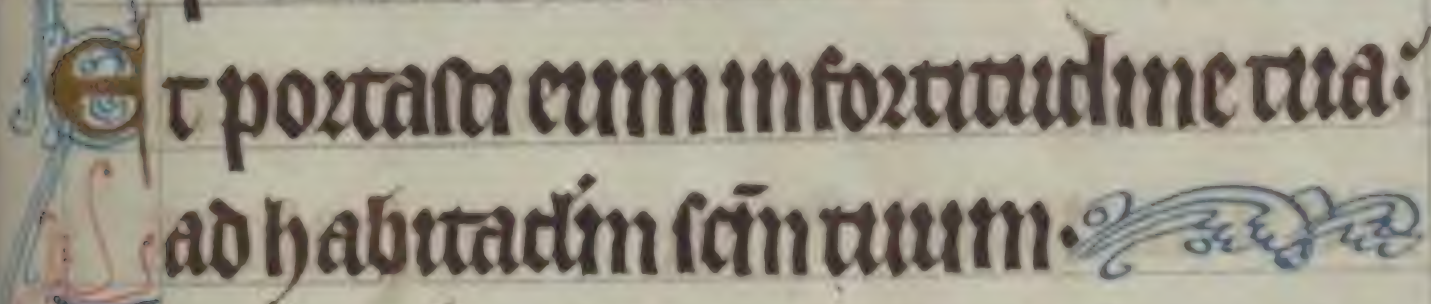 Et portasti eum in fortitudine tua:
ad habitacl'm sc̄m tuum.